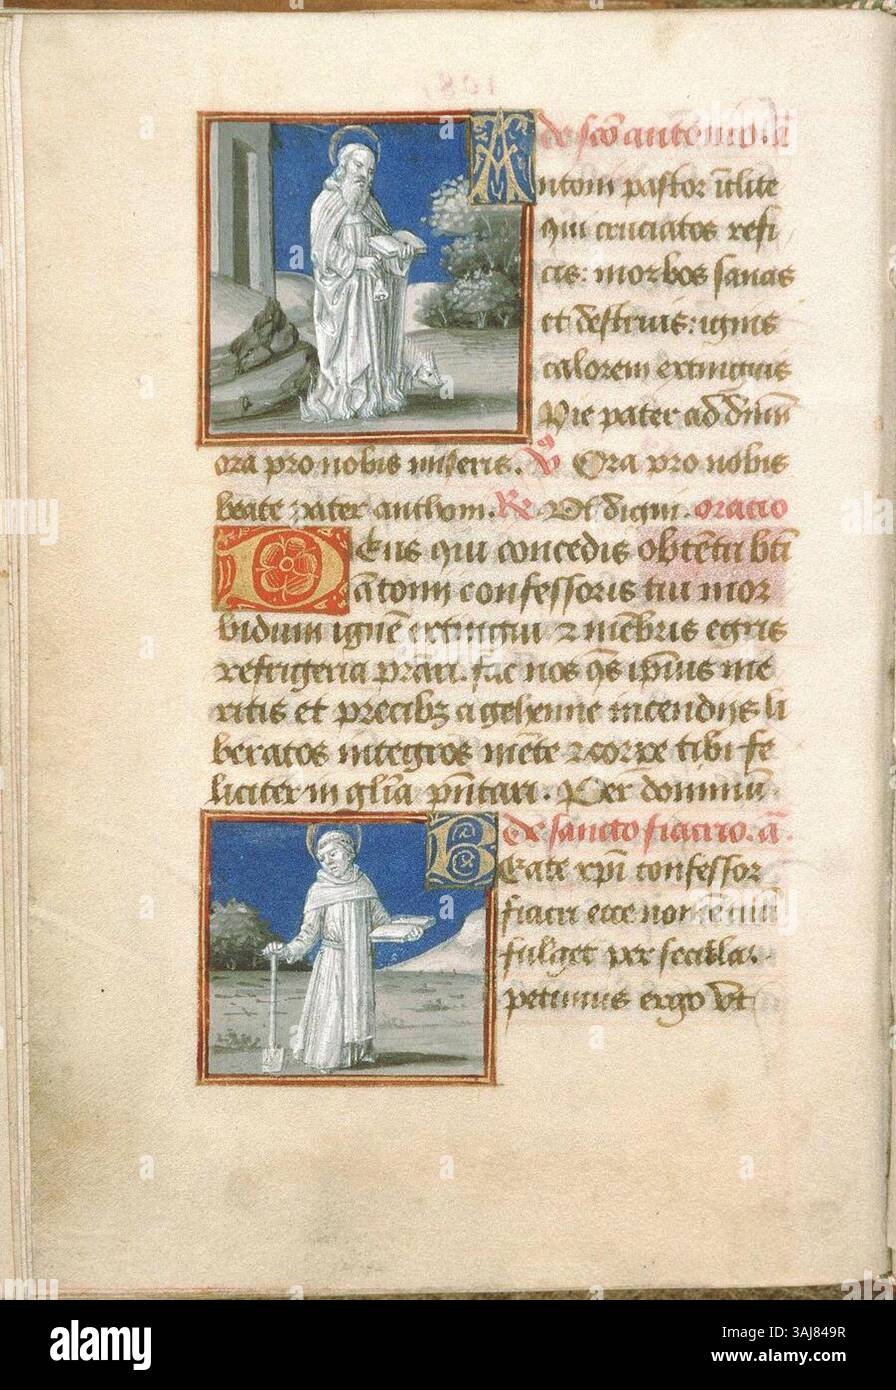 108
de sco anthonio. añ
A
ntoni pastor inclite
qui cruciatos refi
cis: morbos sanas
et destruis: ignis
calorem extinguis
Pie pater ad dnm
ora pro nobis miseris. V Ora pro nobis
beate pater anthoni. R Vt digni. oratio
DEus qui concedis obtentu bti
antonij confessoris tui mor
bidum ignē extingui & mēbris egris
refrigeria prari. fac nos qs ipius me
ritis et precibz a gehenne incendijs li
beratos integros mēte & corpe tibi fe
liciter in glīa pñtari. Per dominū
de sancto fiacrio. añ.
BEate xpi confessor
fiacri ecce nomē tuū
fulget per secula.
petimus ergo vt
alamy
Image ID: 3AJ849R
www.alamy.com